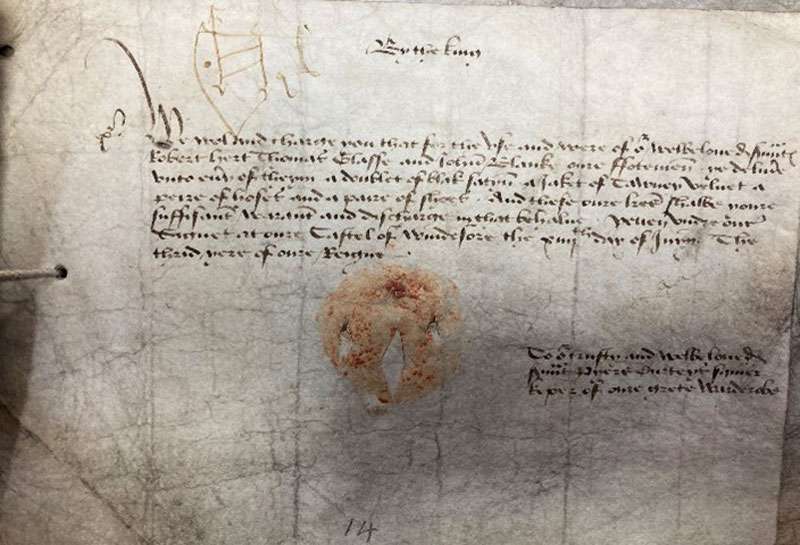 By the king
We wol and charge you that for the vse and were of oʳ welbeloued
Robert hert Thomas Glasse and John Blanke oure ffotemen ye deliuer
vnto eůy of theym a doublet of blak satyn a Jaket of Tawney veluet a
peire of hoses and a paire of shoes . And these oure lres shalbe youre
suffisant warant and discharge in that behalue . yeuen vndre oure
Signet at oure Castel of Windesore the day of The
thrid yere of oure Reigne
To oʳ trusty and welbeloued
keper of oure grete Warderobe
14